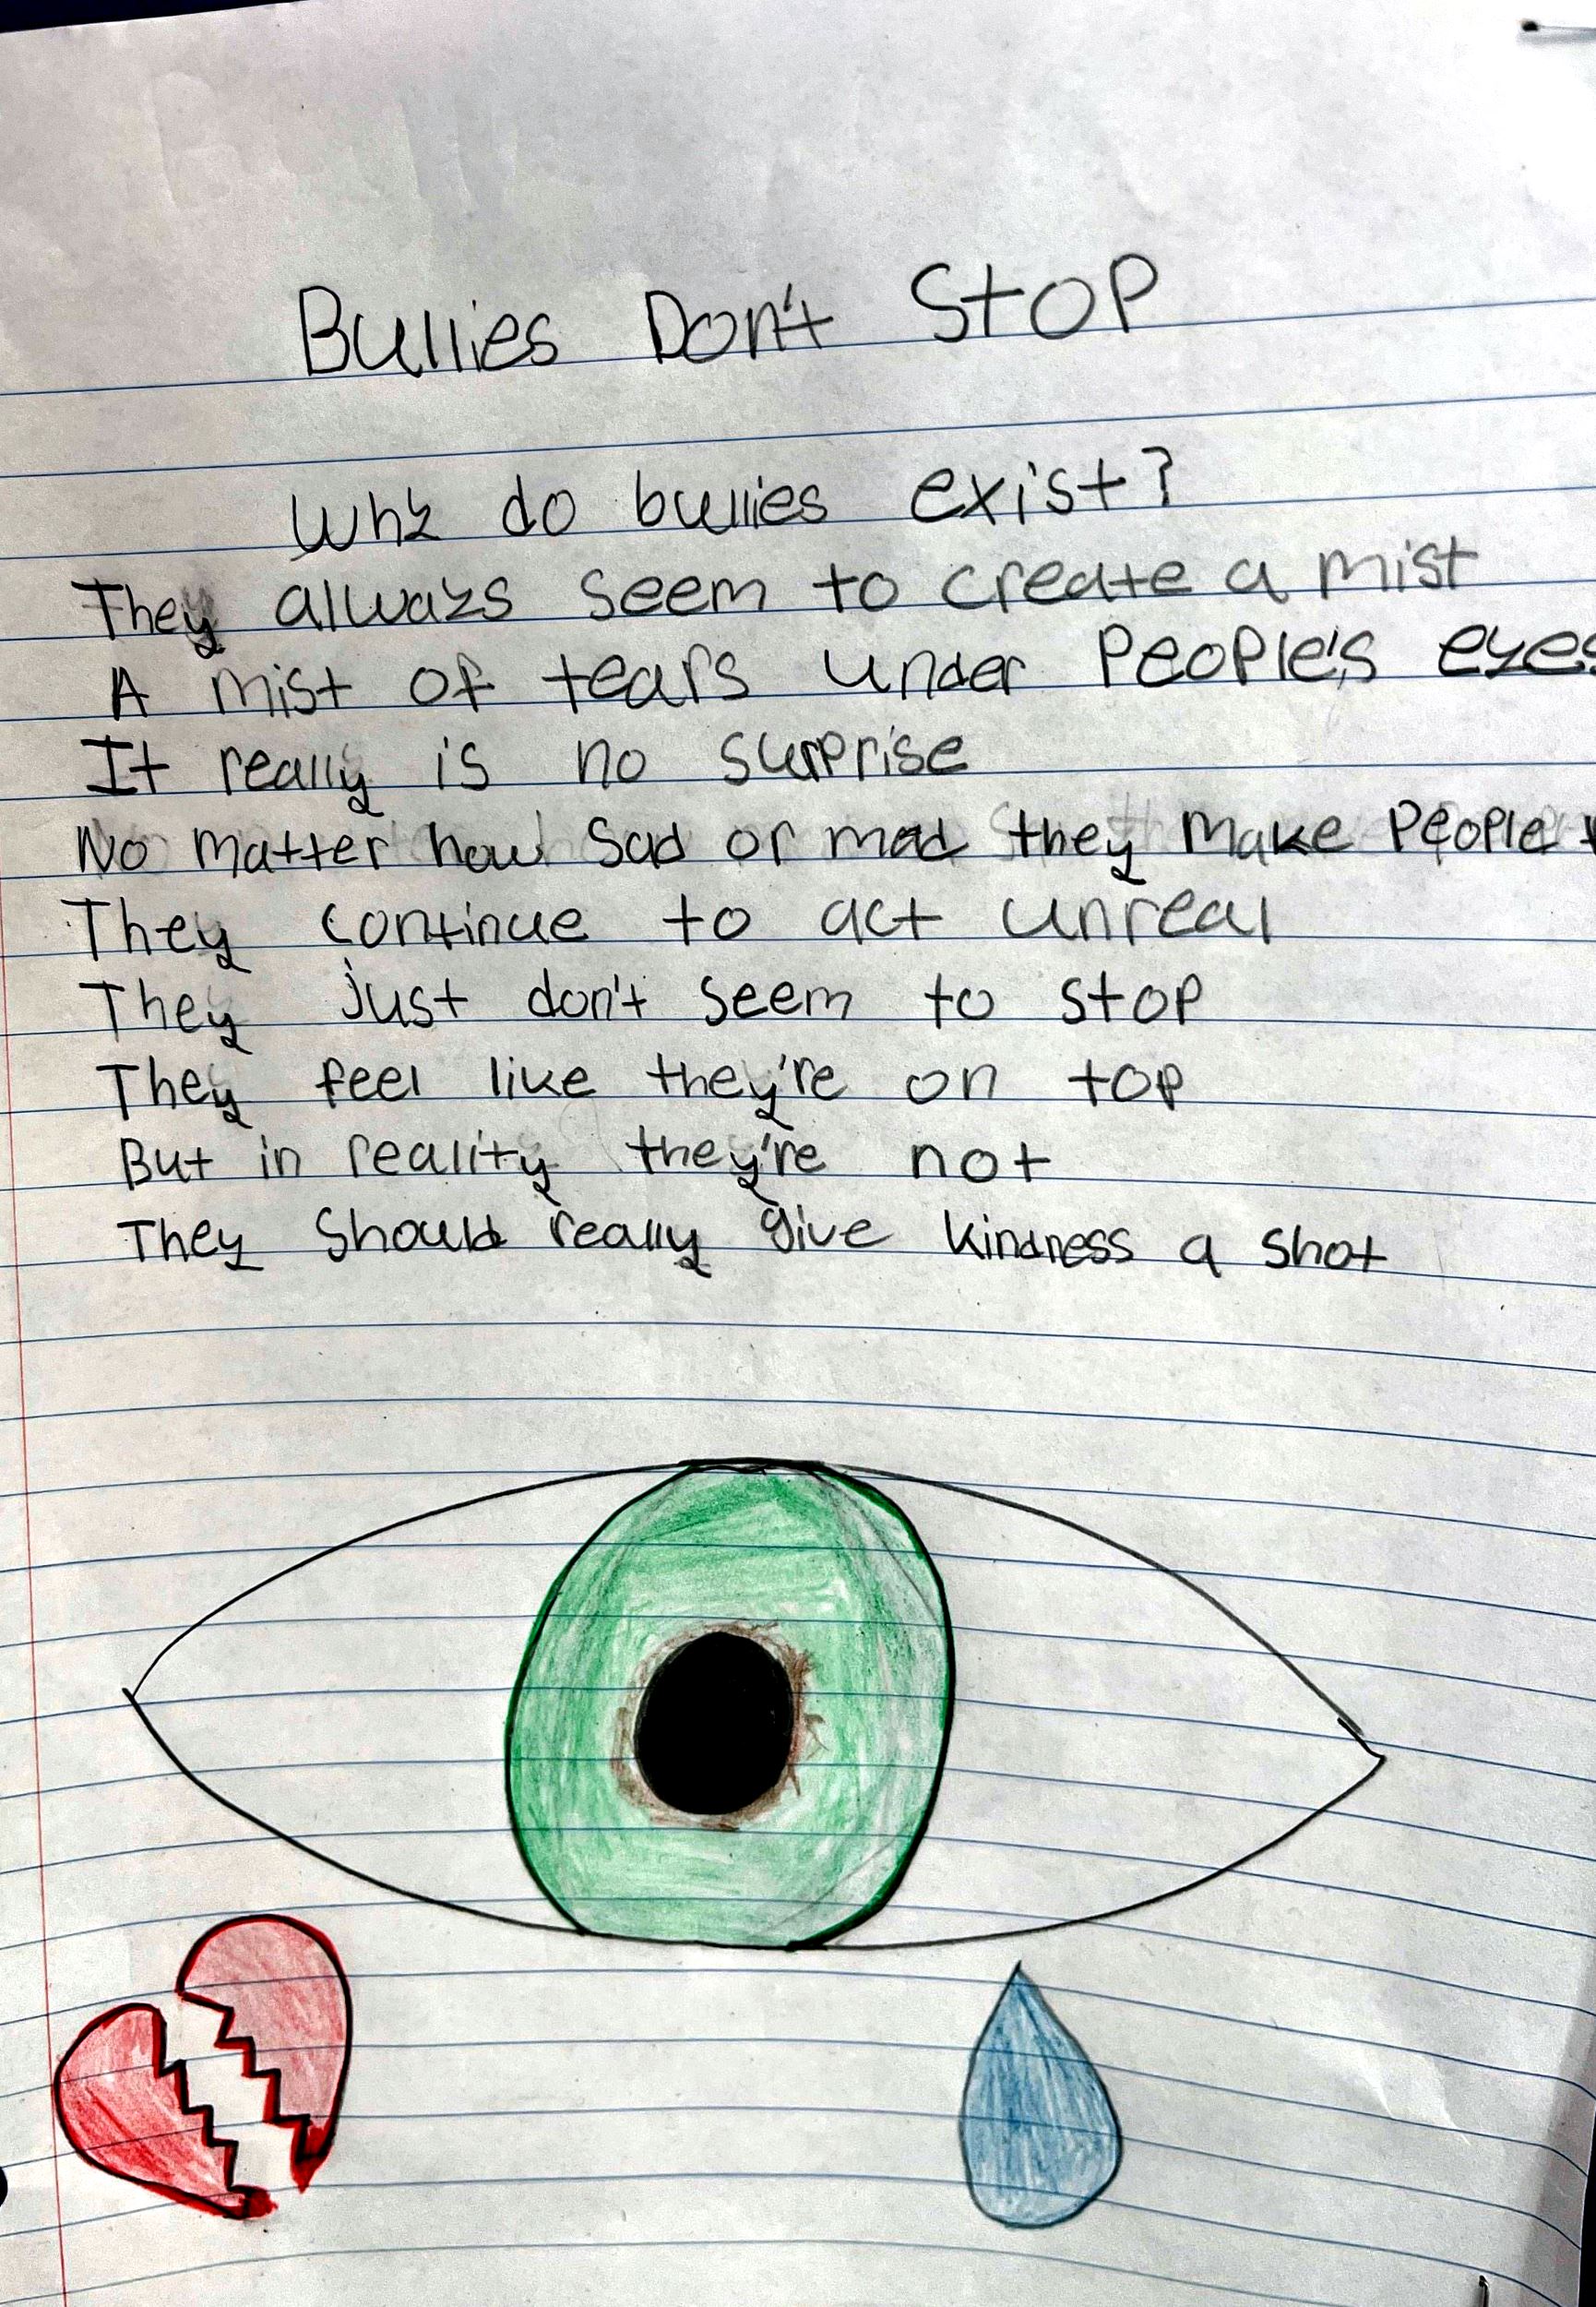 Bullies Don't Stop
Why do bullies exist?
They always seem to create a mist
A mist of tears under people's eyes
It really is no surprise
No matter how sad or mad they make people
They continue to act unreal
They just don't seem to stop
They feel like they're on top
But in reality they're not
They should really give kindness a shot